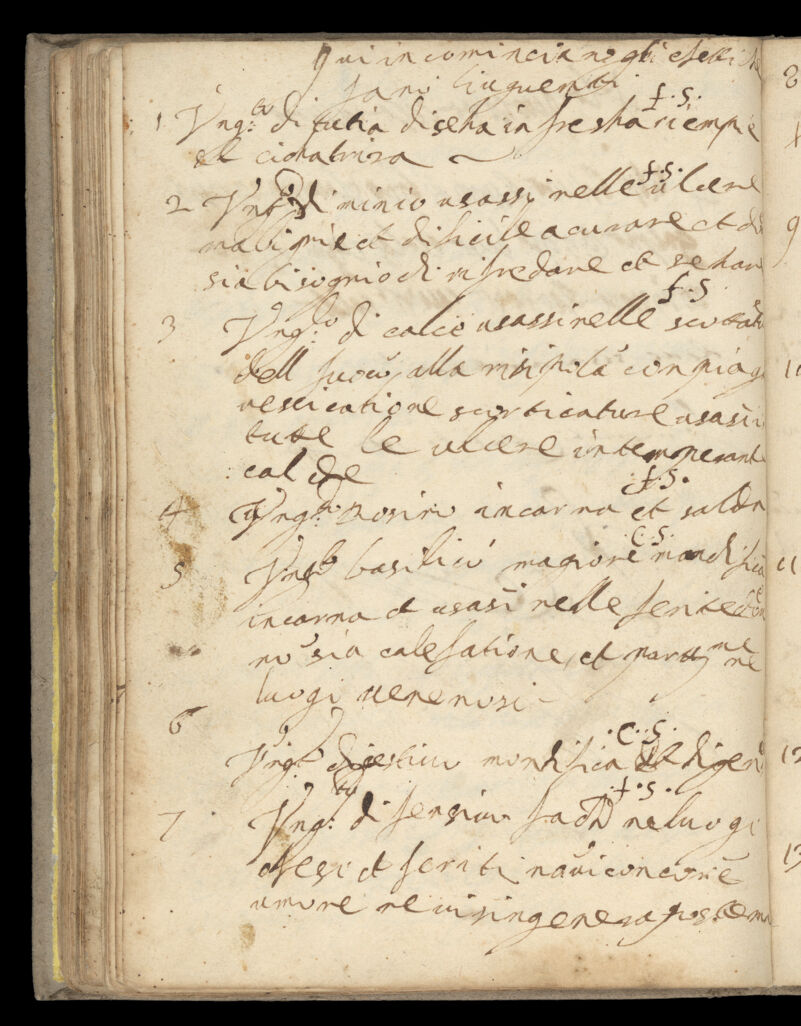 Qui incominciano gli effetti che
fano li unguenti
f. S.
1 Vng.to di tutia diseca infresha riempie
et cicatriza
f. S.
2 Vng.to di minio usassi nelle ulcere
malignie et dificile a curare et do
sia bisognio di rifredare et sechar
f. S.
3 Vng.to di calce usassi nelle scottatu
dell fuoco, alla risipola con piag
vessicatione scorticature usasi i
tutte le ulcere intemperant
calde
f. S.
4 Vng.to incarna et salda
C. S.
5 Vng.to basilico magiore mondifica
incarna et usasi nelle ferite
no sia calefatione, et ne
luogi venenosi
6
. C. S.
Vng.to digestivo mondifica et digeri
. f. S.
7 Vng.to di fensivo ne luogi
ofesi et feriti
umore ne vi si ingenera postema
8
9
10
11
12
13